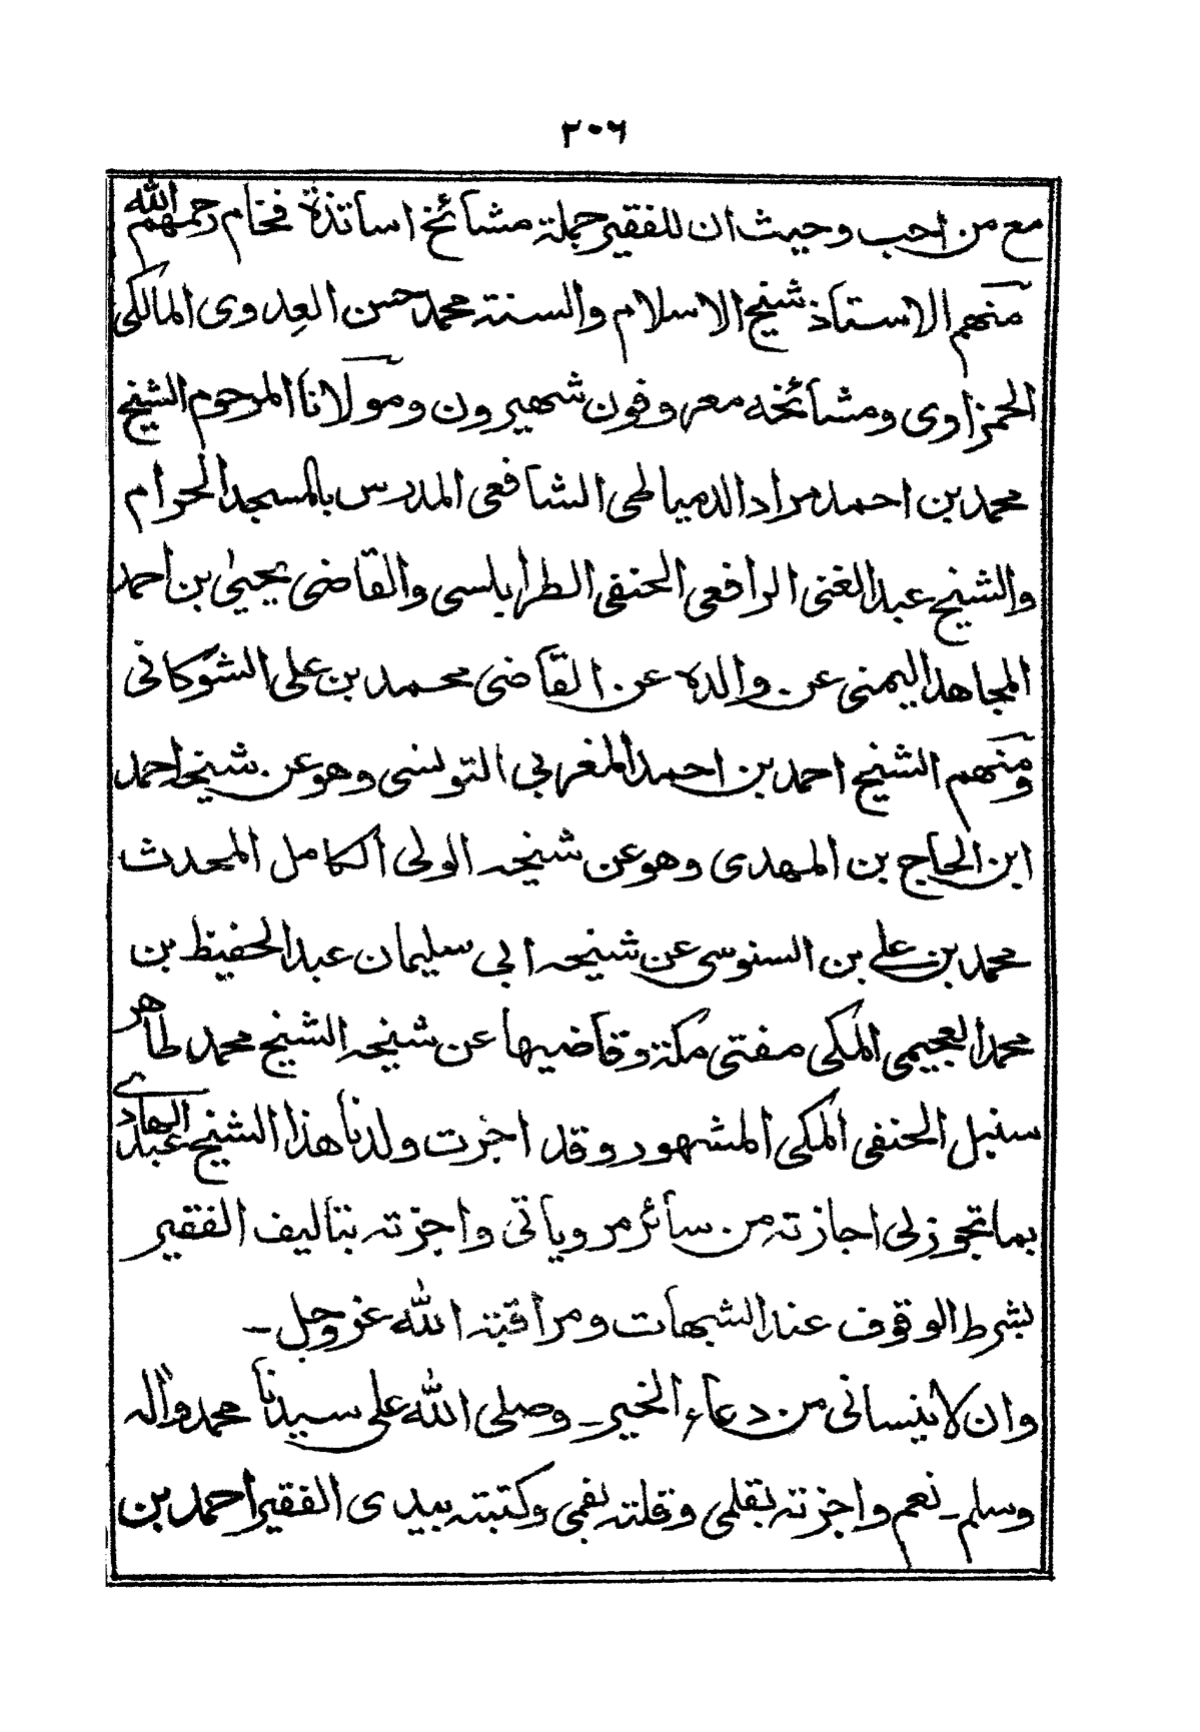 ٢٠٦
مع من احب وحيث ان للفقير جملة مشائخ اساتذة فخام رحمهم الله
منهم الاستاذ شيخ الاسلام والسنة محمد حسن العدوى المالكى
الحمزاوى ومشائخه معروفون شهيرون ومولانا المرحوم الشيخ
محمد بن احمد مراد الدمياطى الشافعى المدرس بالمسجد الحرام
والشيخ عبد الغنى الرافعى الحنفى الطرابلسى والقاضى يحيىٰ بن احمد
المجاهد اليمنى عن والده عن القاضى محمد بن على الشوكانى
ومنهم الشيخ احمد بن احمد المغربى التونسى وهو عن شيخه احمد
ابن الحاج بن المهدى وهو عن شيخه الولى الكامل المحدث
محمد بن على بن السنوسى عن شيخه ابى سليمان عبد الحفيظ بن
محمد العجيمى المكى مفتى مكة وقاضيها عن شيخه الشيخ محمد طاهر
سنبل الحنفى المكى المشهور وقد اجزت ولدنا هذا الشيخ عبد الهادى
بما تجوز لى اجازته من سائر مروياتى واجزته بتاليف الفقير
بشرط الوقوف عند الشبهات ومراقبة الله عز وجل ـ
وان لا ينسانى من دعاء الخير ـ وصلى الله على سيدنا محمد واٰله
وسلم ـ نعم واجزته بقلمى وقلته بفمى وكتبته بيدى الفقير احمد بن